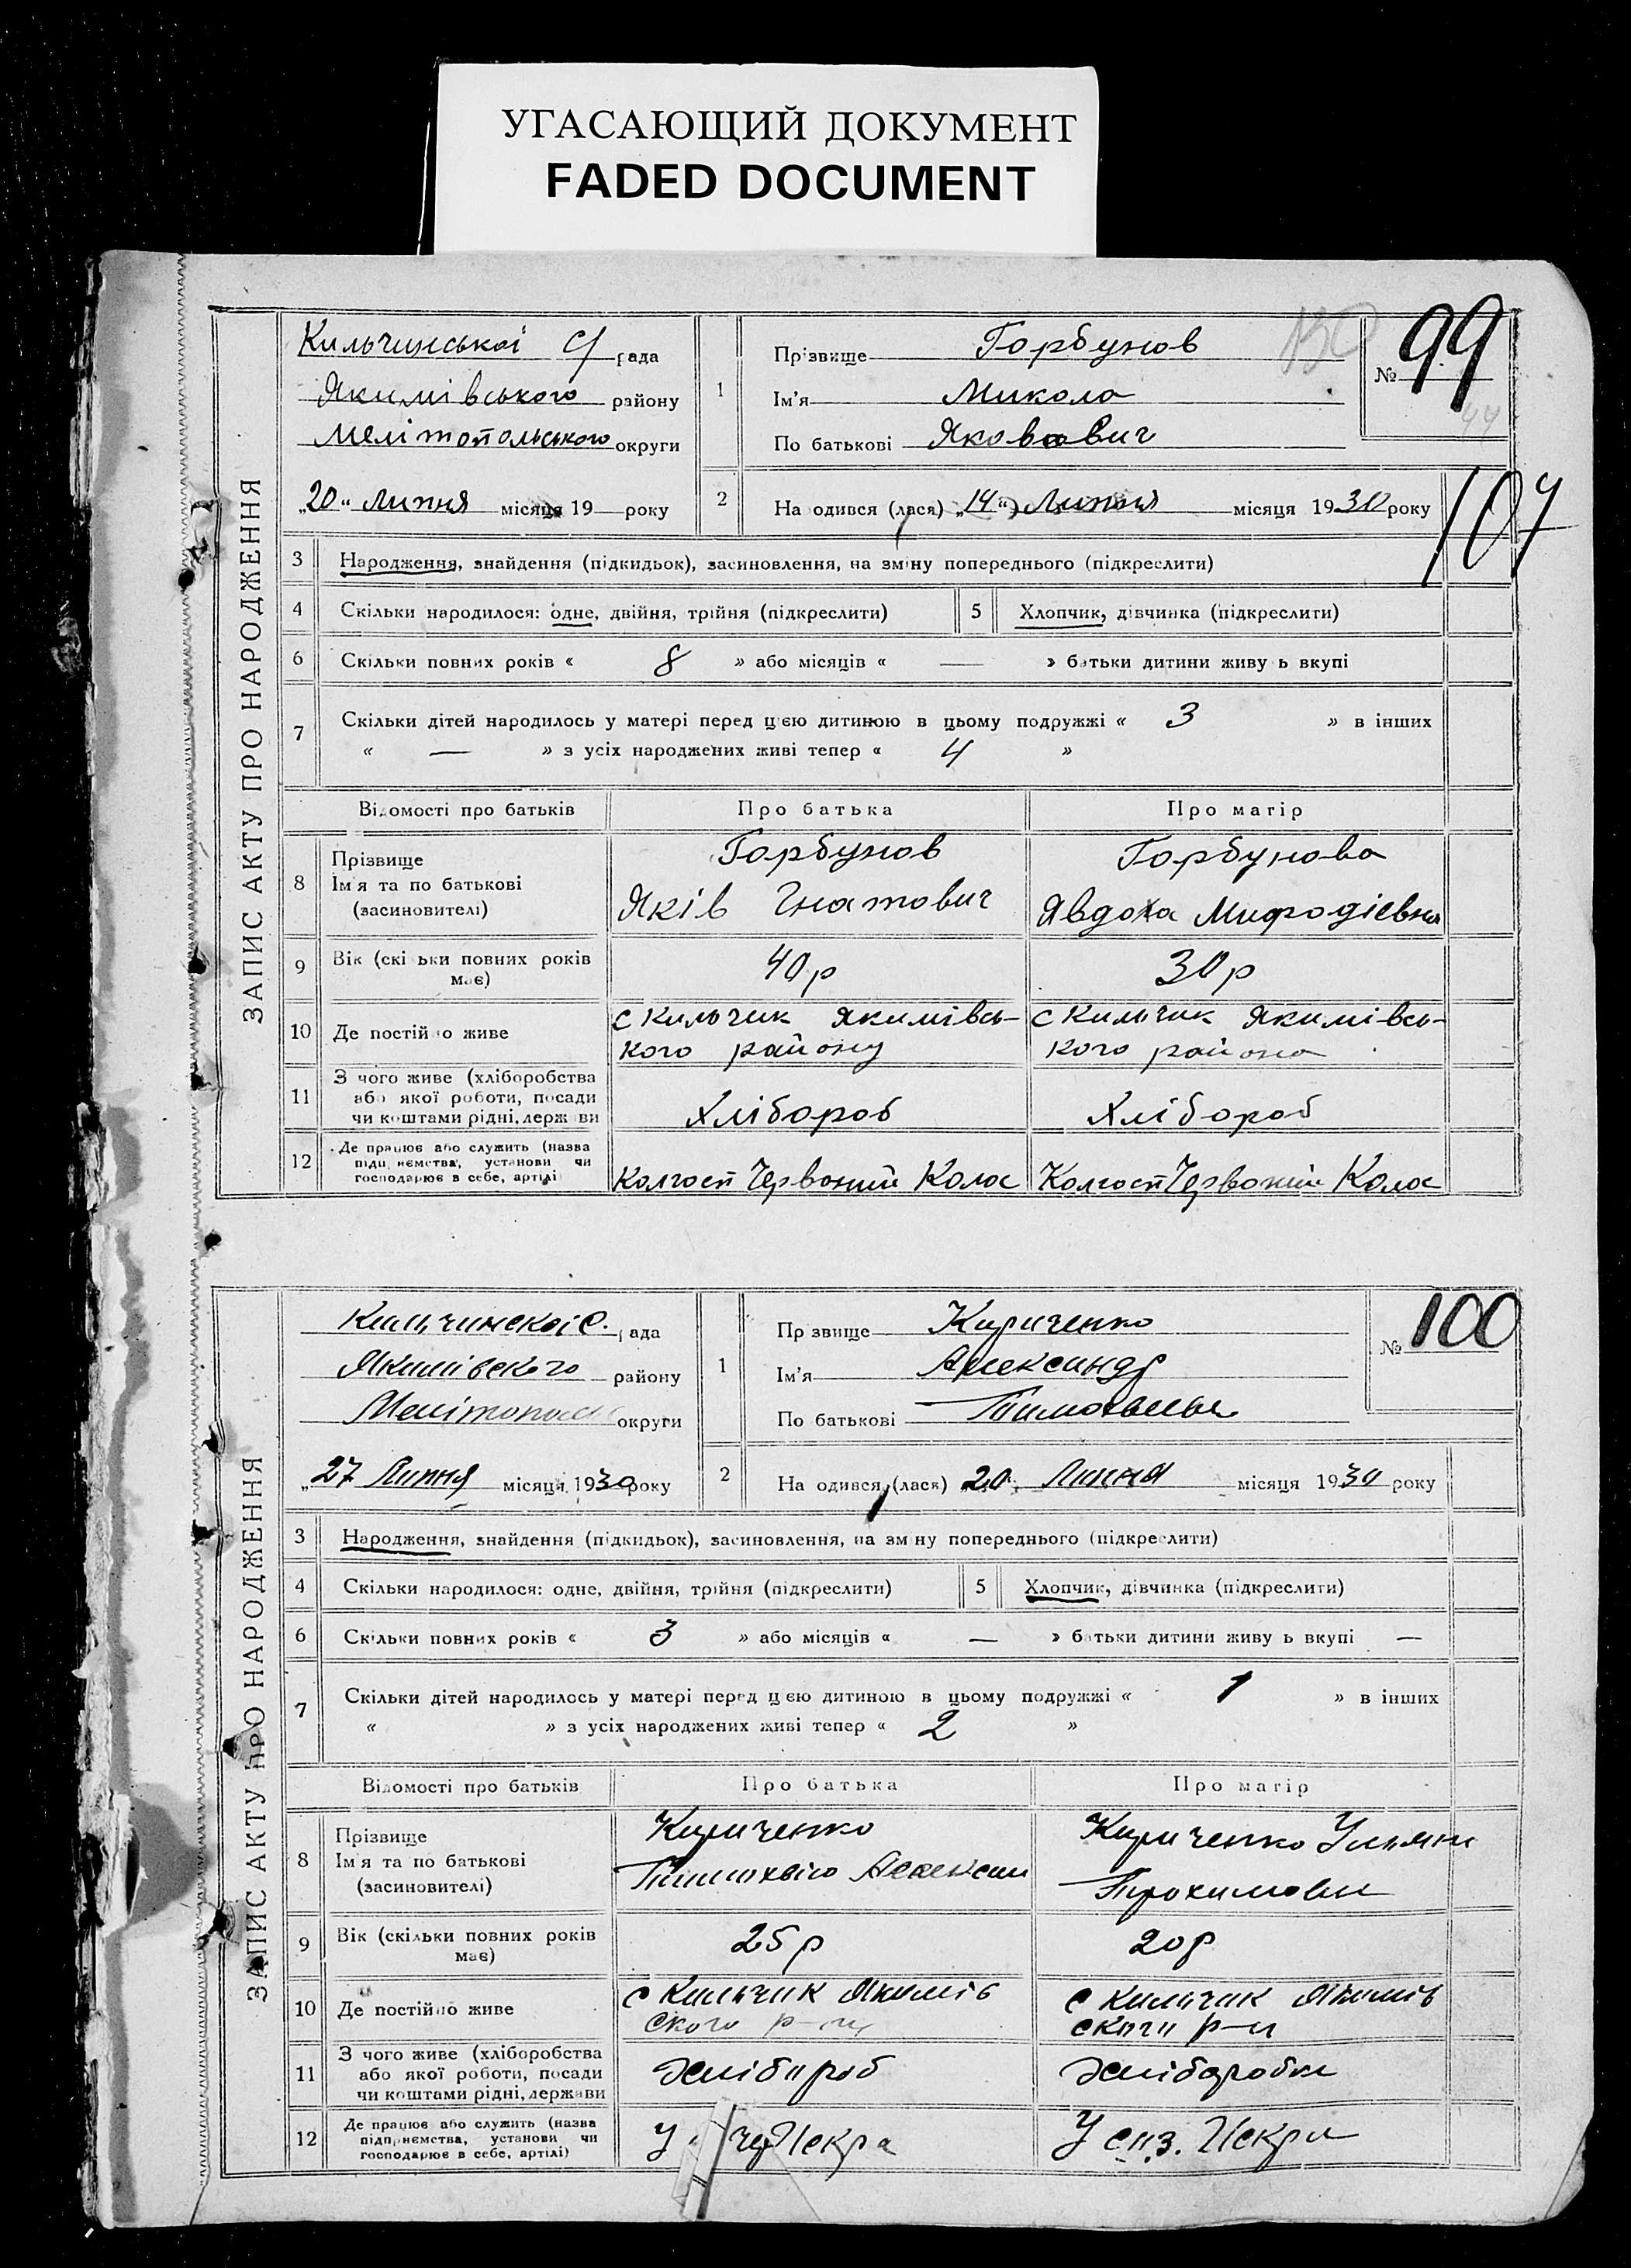 УГАСАЮЩИЙ ДОКУМЕНТ
FADED DOCUMENT
ЗАПИС АКТУ ПРО НАРОДЖЕННЯ
Кильчинської С/ рада
Якимівського району
Мелітопольського округи
„20“ Липня місяця 19 року
1
Прізвище Горбунов
Ім'я Микола
По батькові Яковович
№ 99
44
2 На одився (лася) „14“ Липня місяця 1930 року
107
3 Народження, знайдення (підкидьок), засиновлення, на зміну попереднього (підкреслити)
4 Скільки народилося: одне, двійня, трійня (підкреслити) 5 Хлопчик, дівчинка (підкреслити)
6 Скільки повних років « 8 » або місяців « — » батьки дитини живу ь вкупі
7 Скільки дітей народилось у матері перед цією дитиною в цьому подружжі « 3 » в інших
« — » з усіх народжених живі тепер « 4 »
Відомості про батьків Про батька Про матір
8 Прізвище Горбунов Горбунова
Ім'я та по батькові
(засиновителі) Яків Гнатович Явдоха Мифодіевна
9 Вік (скі ьки повних років має) 40 р 30 р
10 Де постійно живе с Кильчик Якимівсь- с Кильчик Якимівсь-
кого району кого района
11 З чого живе (хліборобства
або якої роботи, посади
чи коштами рідні, держави Хлібороб Хлібороб
12 Де працює або служить (назва
підприємства, установи чи
господарює в себе, артілі) Колгосп Червоний Колос Колгосп Червоний Колос
ЗАПИС АКТУ ПРО НАРОДЖЕННЯ
Кильчинскоі С. рада
Якимівского району
Мелітопол округи
„27 Липня місяця 1930 року
1
Пр звище Кириченко
Ім'я Александр
По батькові Тимохвееве
№ 100
2 На одився (лася) 20 Липня місяця 1930 року
3 Народження, знайдення (підкидьок), засиновлення, на зміну попереднього (підкреслити)
4 Скільки народилося: одне, двійня, трійня (підкреслити) 5 Хлопчик, дівчинка (підкреслити)
6 Скільки повних років « 3 » або місяців « — » батьки дитини живу ь вкупі —
7 Скільки дітей народилось у матері перед цією дитиною в цьому подружжі « 1 » в інших
« » з усіх народжених живі тепер « 2 »
Відомості про батьків Про батька Про матір
8 Прізвище Кириченко Кириченко Ульяна
Ім'я та по батькові
(засиновителі) Трохимовн
9 Вік (скільки повних років має) 25 р 20 р
10 Де постійно живе с Кильчик Якимів с Кильчик Якимів
ского р-ну ского р-н
11 З чого живе (хліборобства
або якої роботи, посади
чи коштами рідні, держави Хлібороб Хліборобка
12 Де працює або служить (назва
підприємства, установи чи
господарює в себе, артілі) У Искра У соз. Искри